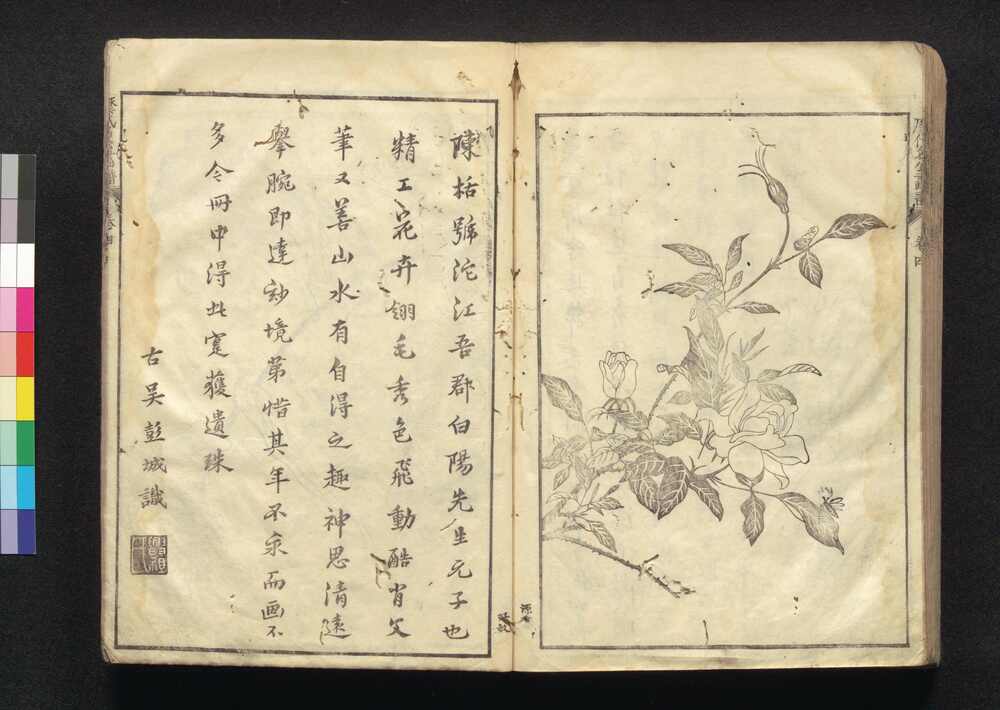 陳栝號沱江吾郡白陽先生元子也
精工花卉翎毛秀色飛動酷肖父
筆又善山水有自得之趣神思清遠
擧腕即達玅境第惜其年不永而画不
多今冊中得此寔獲遺珠
古吴彭城識